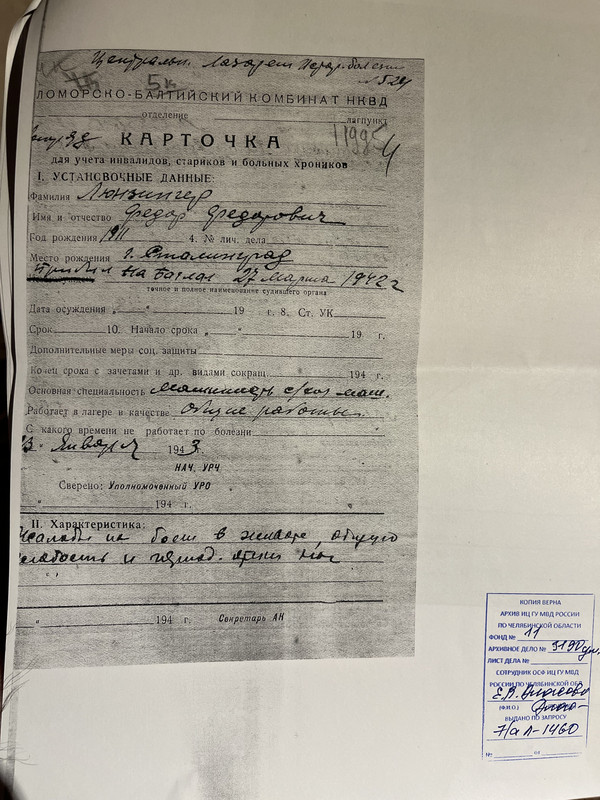 Центральн. Лазарет
5к
ЛОМОРСКО-БАЛТИЙСКИЙ КОМБИНАТ НКВД
отделение лагпункт
КАРТОЧКА
для учета инвалидов, стариков и больных хроников
I. УСТАНОВОЧНЫЕ ДАННЫЕ:
Фамилия Люнзингер
Имя и отчество Федор Федорович
Год рождения 1911 4. № лич. дела
Место рождения г. Сталинград
Прибыл на Бакал 27 марта 1942 г
точное и полное наименование судившего органа
Дата осуждения „ “ 19 г. 8. Ст. УК
Срок 10. Начало срока „ “ 19 г.
Дополнительные меры соц. защиты
Конец срока с зачетами и др. видами сокращ. 194 г.
Основная специальность машинист с/хоз маш.
Работает в лагере в качестве общие работы
С какого времени не работает по болезни
13 Января 1943 г.
НАЧ. УРЧ
Сверено: Уполномоченный УРО
194 г.
II. Характеристика:
Жалобы на боли в животе, общую
слабость и период. отеки ног
„ “ 194 г. Секретарь АК
КОПИЯ ВЕРНА
АРХИВ ИЦ ГУ МВД РОССИИ
ПО ЧЕЛЯБИНСКОЙ ОБЛАСТИ
ФОНД № 11
АРХИВНОЕ ДЕЛО №
ЛИСТ ДЕЛА №
СОТРУДНИК ОСФ ИЦ ГУ МВД
РОССИИ ПО ЧЕЛЯБИНСКОЙ ОБЛ.
Е.В.
(Ф.И.О.)
ВЫДАНО ПО ЗАПРОСУ
7/а Л-1460
№ от